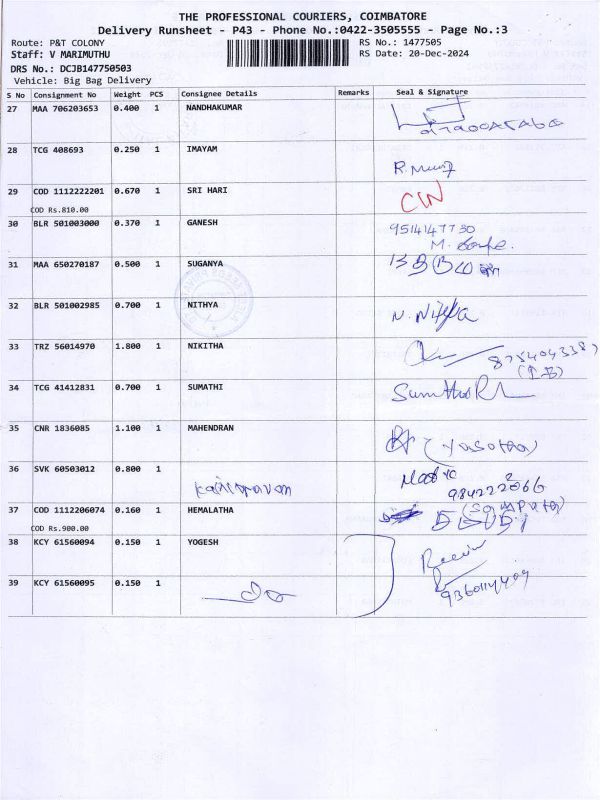 THE PROFESSIONAL COURIERS, COIMBATORE
Delivery Runsheet - P43 - Phone No.:0422-3505555 - Page No.:3
Route: P&T COLONY RS No.: 1477505
Staff: V MARIMUTHU RS Date: 20-Dec-2024
DRS No.: DCJB147750503
Vehicle: Big Bag Delivery
S No Consignment No Weight PCS Consignee Details Remarks Seal & Signature
27 MAA 706203653 0.400 1 NANDHAKUMAR
28 TCG 408693 0.250 1 IMAYAM
29 COD 1112222201 0.670 1 SRI HARI CIN
COD Rs.810.00
30 BLR 501003000 0.370 1 GANESH 9514147730
31 MAA 650270187 0.500 1 SUGANYA
32 BLR 501002985 0.700 1 NITHYA N. Nithya
33 TRZ 56014970 1.800 1 NIKITHA
34 TCG 41412831 0.700 1 SUMATHI
35 CNR 1836085 1.100 1 MAHENDRAN (Yasotha)
36 SVK 60503012 0.800 1
37 COD 1112206074 0.160 1 HEMALATHA
COD Rs.900.00
38 KCY 61560094 0.150 1 YOGESH
39 KCY 61560095 0.150 1